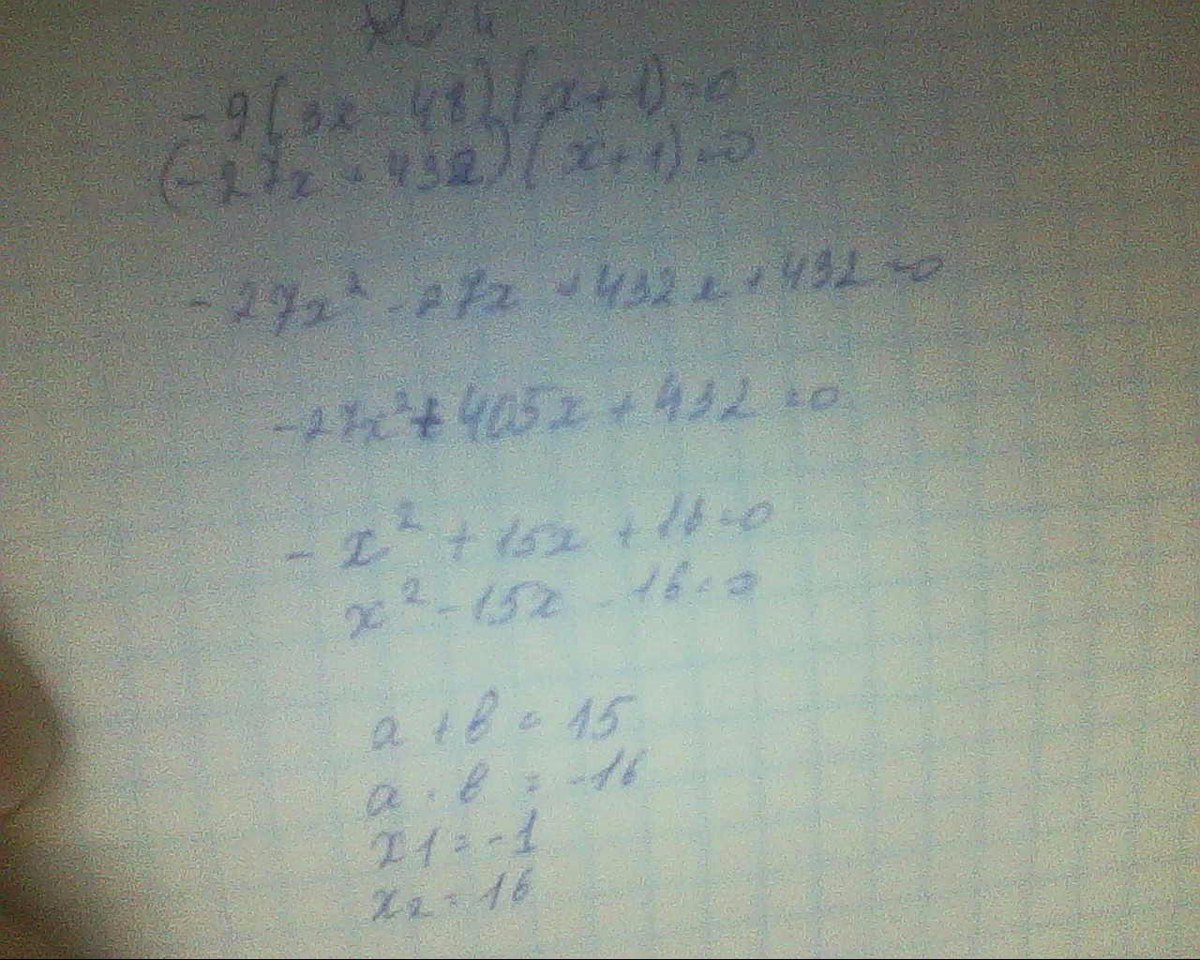 -9(3x-48)(x+1)=0
(-27x+432)(x+1)=0
-27x²-27x+432x+432=0
-27x²+405x+432=0
-x²+15x+16=0
x²-15x-16=0
a+b=15
a·b=-16
x1=-1
x2=16